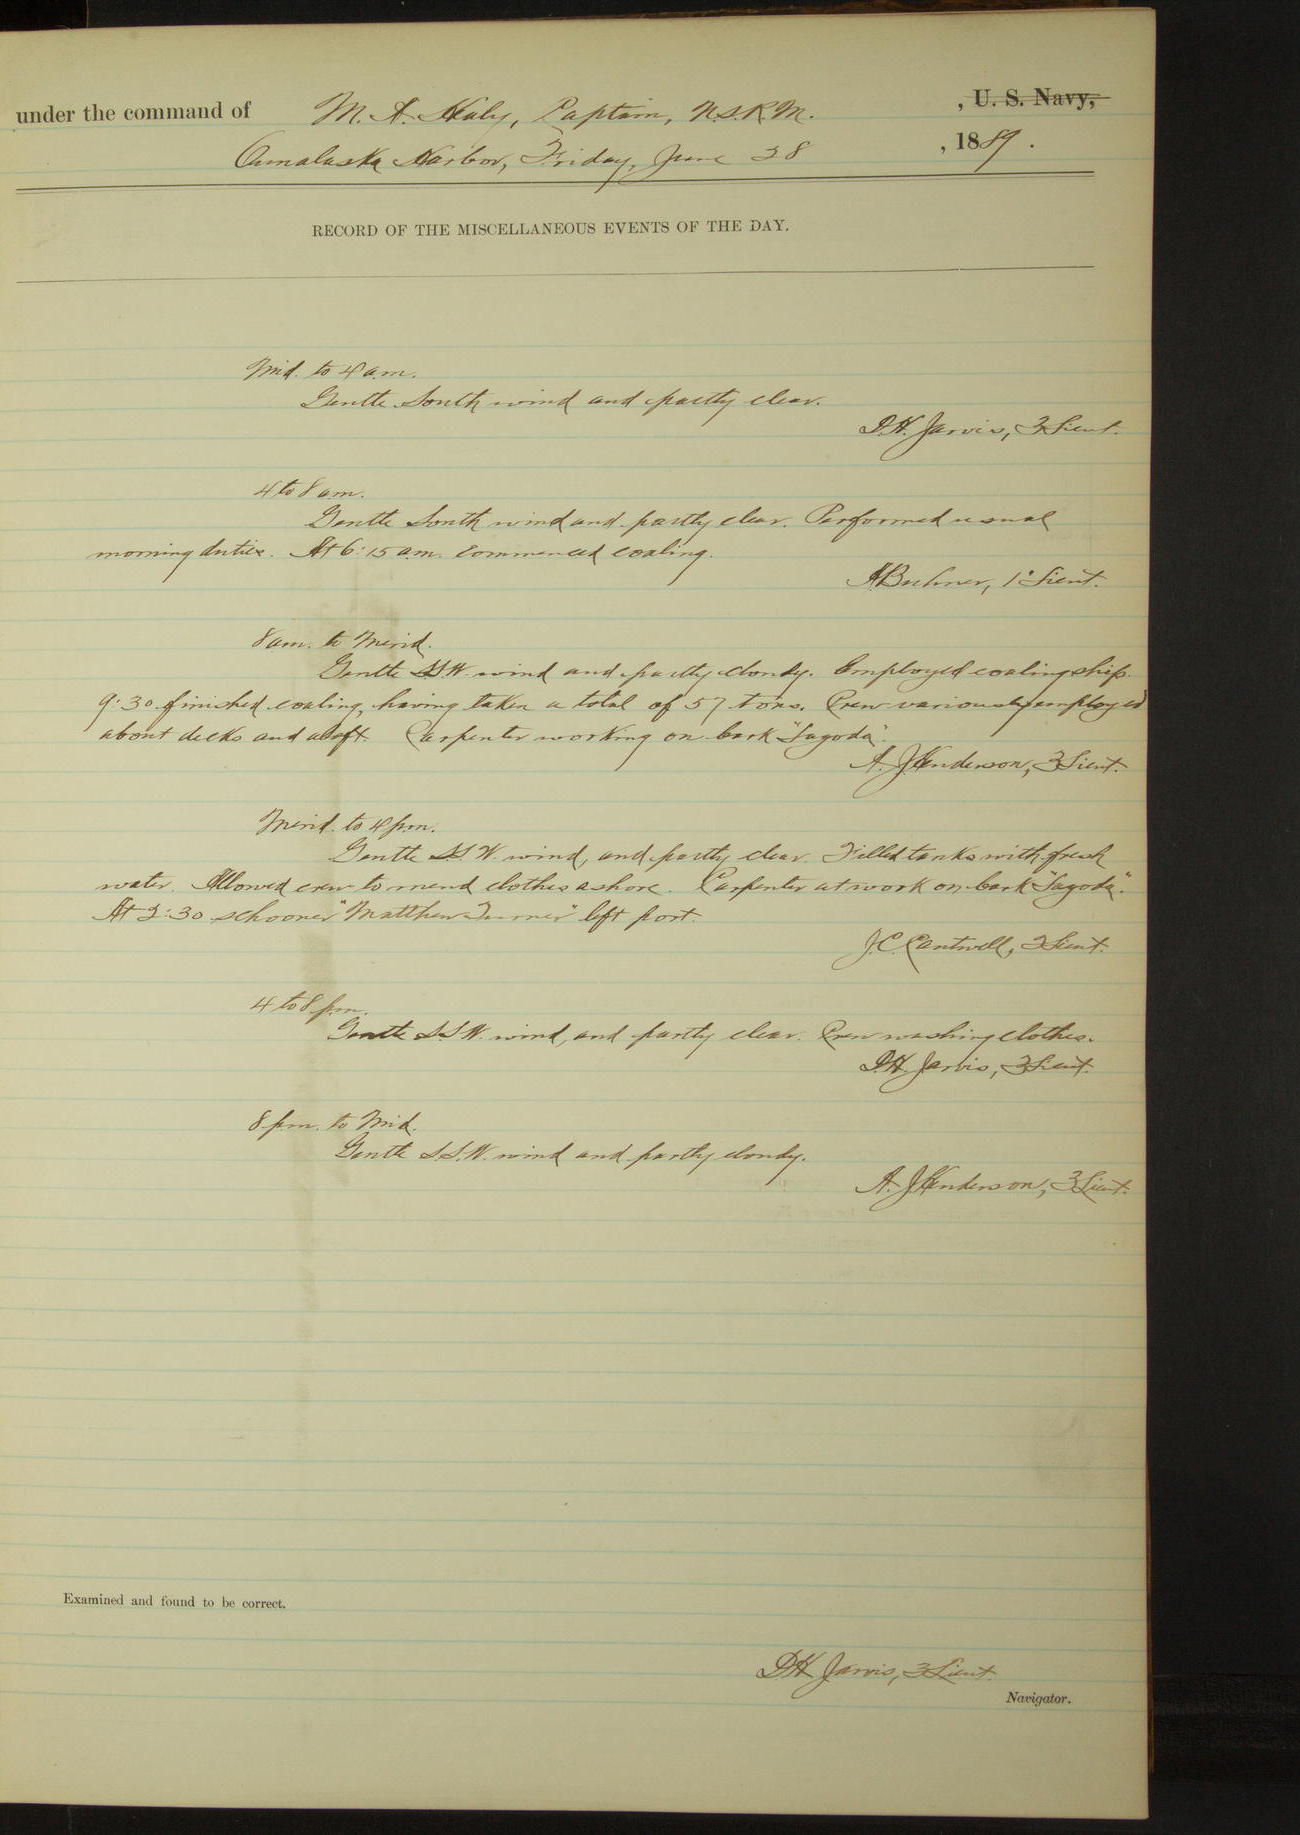 under the command of M. A. Healy, Captain, U.S.R.M. , U. S. Navy,
Ounalaska Harbor, Friday, June 28 , 1889.
RECORD OF THE MISCELLANEOUS EVENTS OF THE DAY.
Mid. to 4 a.m.
Gentle South wind and partly clear.
D.H. Jarvis, 3 Lieut.
4 to 8 a.m.
Gentle South wind and partly clear. Performed usual
morning duties. At 6:15 a.m. commenced coaling.
A Buhner, 1st Lieut.
8 a.m. to Merid.
Gentle S.S.W. wind and partly cloudy. Employed coaling ship.
9:30 finished coaling, having taken a total of 57 tons. Crew variously employed
about decks and aloft. Carpenter working on bark "Lagoda".
A. J. Henderson, 3 Lieut.
Merid. to 4 p.m.
Gentle S.S.W. wind, and partly clear. Filled tanks with fresh
water. Allowed crew to mend clothes ashore. Carpenter at work on bark "Lagoda".
At 2:30 schooner "Matthew Turner" left port.
J.C. Cantwell, 2 Lieut.
4 to 8 p.m.
Gentle S.S.W. wind, and partly clear. Crew washing clothes.
D.H. Jarvis, 3 Lieut.
8 p.m. to Mid.
Gentle S.S.W. wind and partly cloudy.
A. J. Henderson, 3 Lieut.
Examined and found to be correct.
D.H. Jarvis, 3 Lieut.
Navigator.